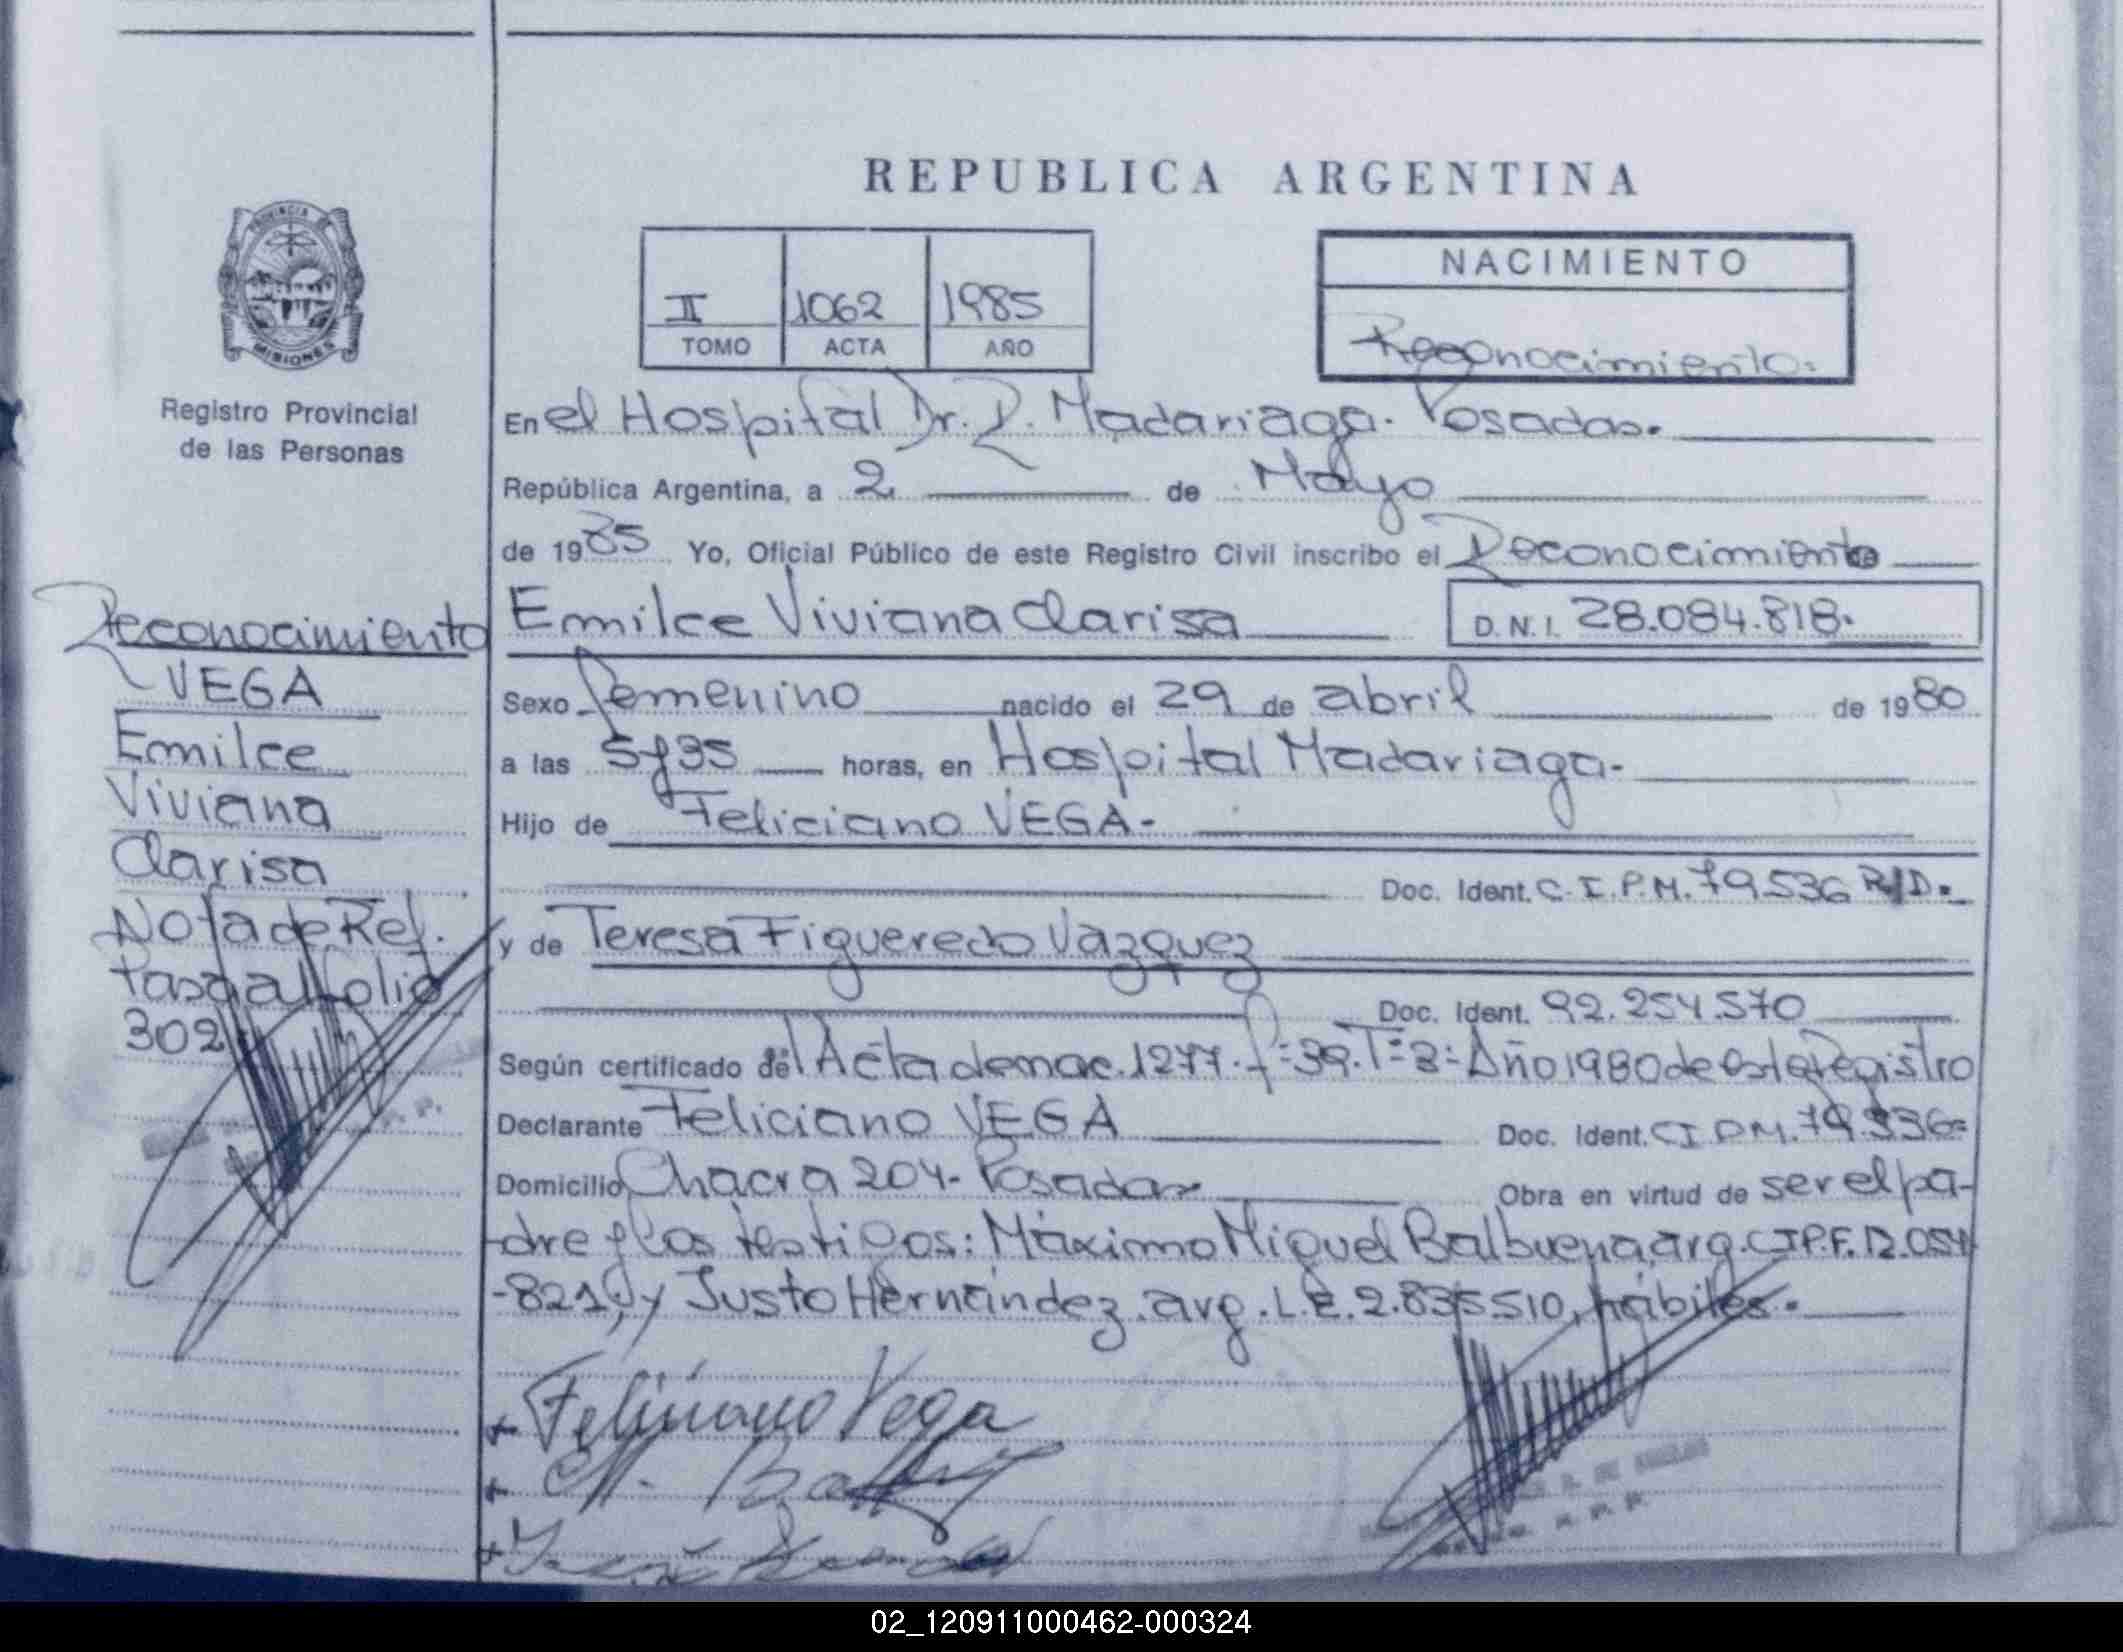 REPUBLICA ARGENTINA
PROVINCIA DE
MISIONES
Registro Provincial
de las Personas
II 1062 1985
TOMO ACTA AÑO
NACIMIENTO
Reconocimiento.
En el Hospital Dr. R. Madariaga. Posadas.
República Argentina, a 2 de Mayo
de 1985 Yo, Oficial Público de este Registro Civil inscribo el Reconocimiento
Emilce Viviana Clarisa D.N.I. 28.084.818.
Sexo femenino nacido el 29 de abril de 1980
a las 5 y 35 horas, en Hospital Madariaga.
Hijo de Feliciano VEGA-
Doc. Ident. C.I.P.M. 79.536 R/D.
y de Teresa Figueredo Vazquez
Doc. Ident. 92.254.570
Según certificado del Acta de nac. 1277. fº 39. Tº 3º Año 1980 de este Registro
Declarante Feliciano VEGA Doc. Ident. C I P M. 79.536
Domicilio Chacra 204- Posadas Obra en virtud de ser el pa-
dre y los testigos: Máximo Miguel Balbuena, arg. C.I.P.F. 12.054
-821, y Justo Hernández. arg. L.E. 2.835.510, hábiles.
Feliciano Vega
Reconocimiento
VEGA
Emilce
Viviana
Clarisa
Nota de Ref.
Pasa al folio
302
02_120911000462-000324